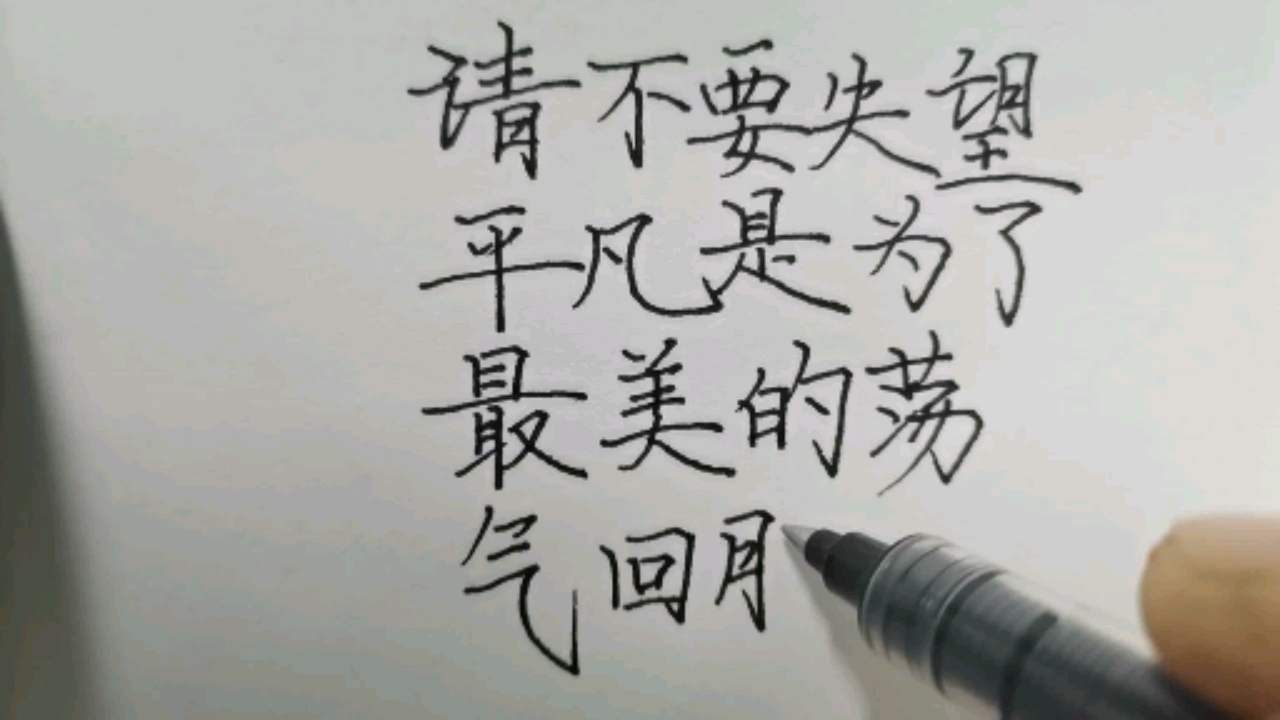 请不要失望
平凡是为了
最美的荡
气回月